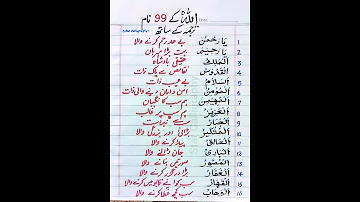 اللہ کے 99 نام
ترجمہ کے ساتھ
1 یَا رَحْمٰنُ بے حد رحم کرنے والا
2 یَا رَحِیْمُ بہت بڑا مہربان
3 اَلْمَلِکُ حقیقی بادشاہ
4 اَلْقُدُّوْسُ نقائص سے پاک ذات
5 اَلسَّلَامُ بے عیب ذات
6 اَلْمُؤْمِنُ امن و امان دینے والی ذات
7 اَلْمُهَیْمِنُ ہم سب کا نگہبان
8 اَلْعَزِیْزُ ہم سب پر غالب
9 اَلْجَبَّارُ سب سے زبردست
10 اَلْمُتَکَبِّرُ بڑائی اور بزرگی والا
11 اَلْخَالِقُ پیدا کرنے والا
12 اَلْبَارِئُ جان ڈالنے والا
13 اَلْمُصَوِّرُ صورتیں بنانے والا
14 اَلْغَفَّارُ بڑا درگزر کرنے والا
15 اَلْقَهَّارُ سب کو اپنے قابو میں کرنے والا
16 اَلْوَهَّابُ سب کچھ عطا کرنے والا